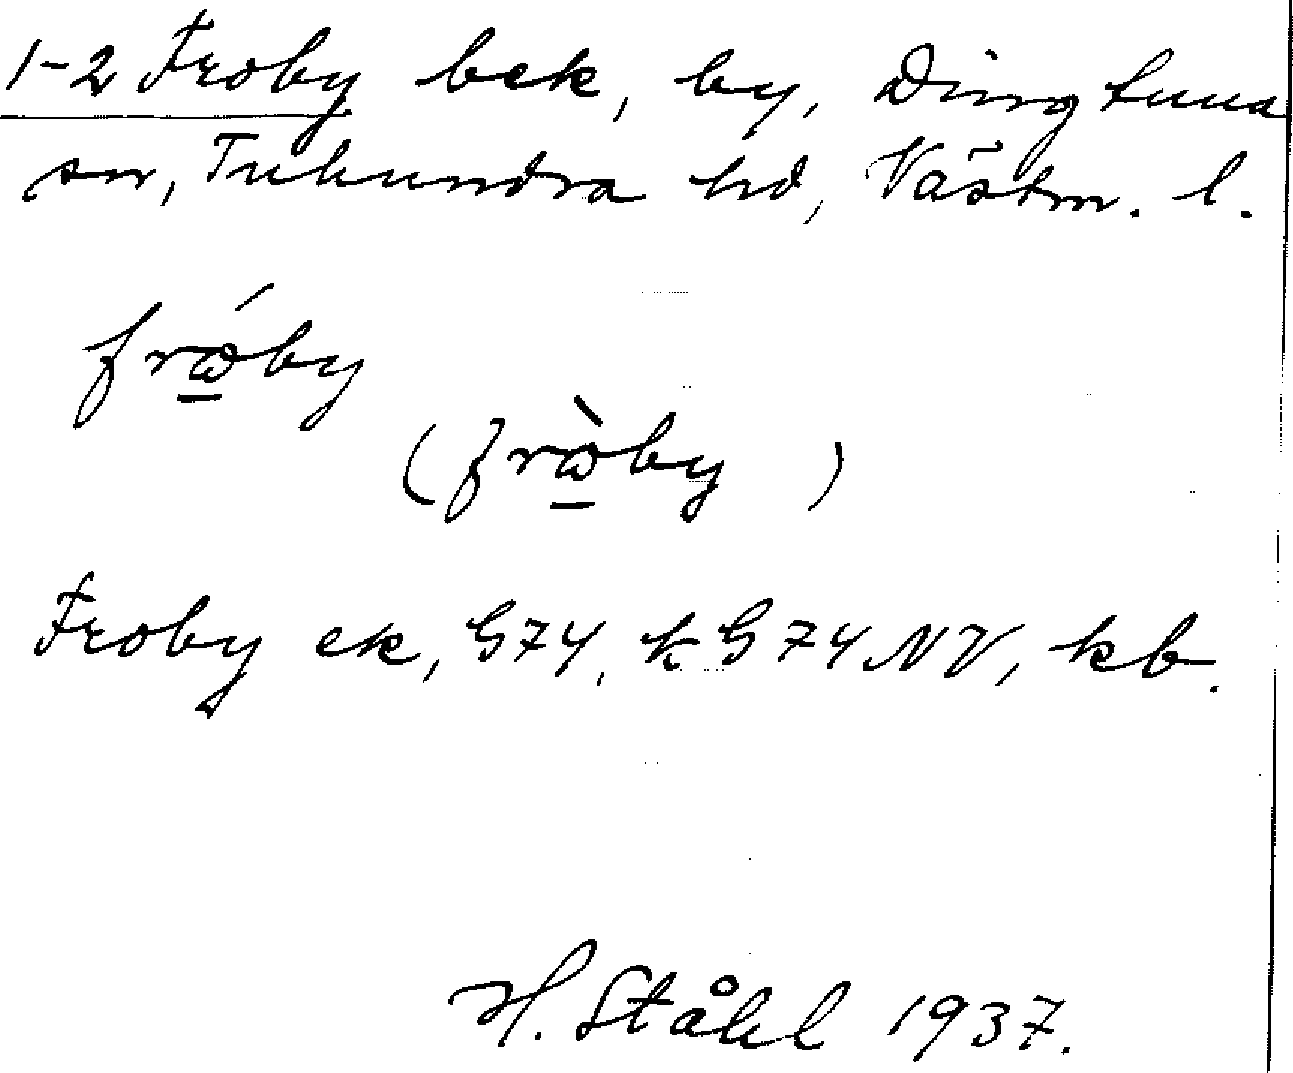 1-2 Froby bek, by, Dingtuna
sn, Tuhundra hd, Västm. l.
frώ̲by
(frὼ̲by)
Froby ek, G74, k G74NV, kb.
H. Ståhl 1937.